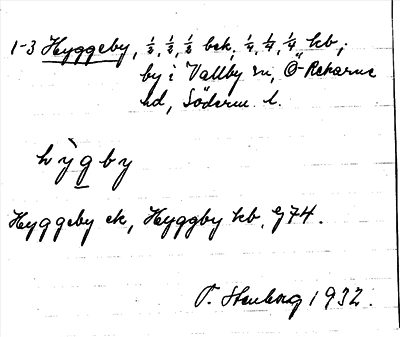 1-3 Hyggeby, 1/8, 1/8, 1/8 bek, 1/4, 1/4, 1/4 kb,
by i Vallby sn, Ö-Rekarne
hd, Söderm. l.
hỳg̲by
Hyggeby ek, Hyggby kb. G74.
1932.